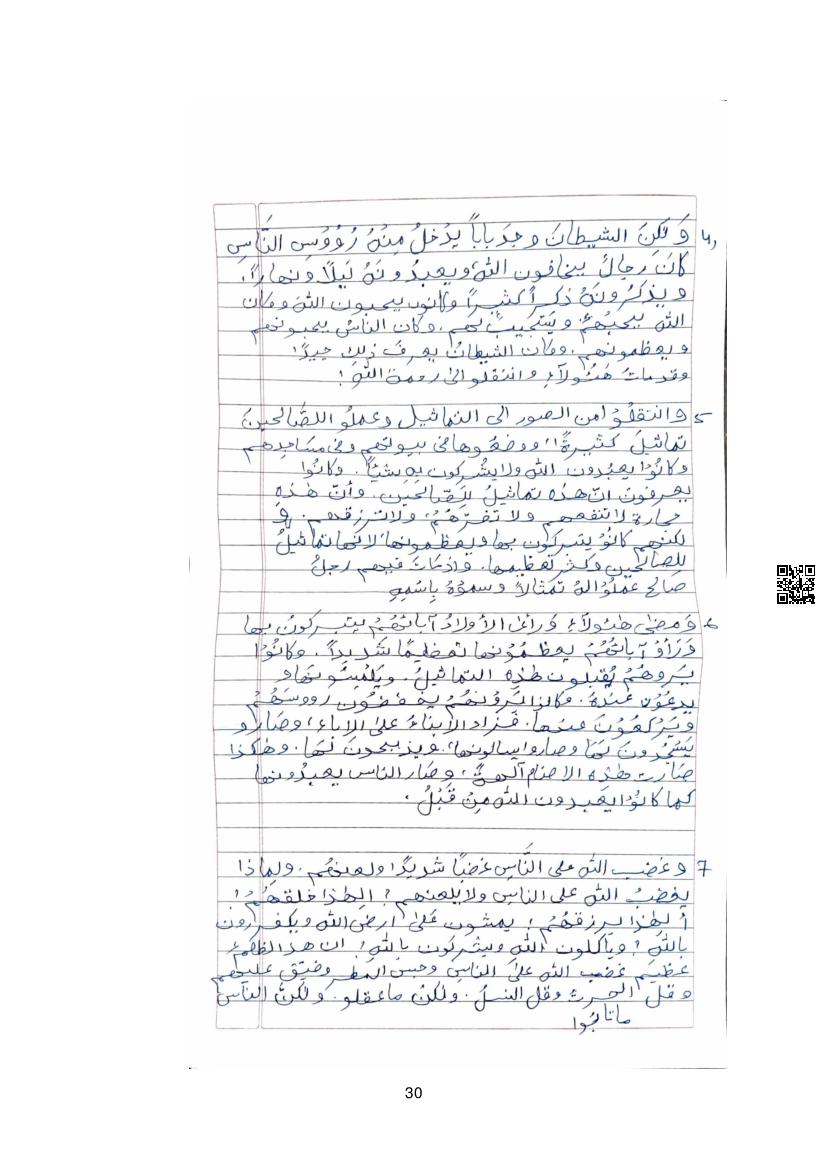 4, وَلكِنَ الشيطانَ وجدَ باباً يدْخلُ مِنْهُ رُؤُوسِ النَّاسِ
كانَ رجالٌ يخافون اللهَ ويعبدُونَهُ لَيلًا ونهاراً.
ويذكرُونَهُ ذكراً كثيراً وكانوا يحبون اللهَ وكان
اللهُ يحبُهُمْ ويَسْتجيبُ لهم. وكان الناسُ يحبونهم
ويعظمونهم. وكان الشيطانُ يعرفَ ذلك جيدًا!
وقدمات هَئُولَاءِ وانتقلو الى رحمة اللهِ!
5 وانتقلُوْ امن الصور الى التماثيل وعملُو اللصَّالحينَ
تماثيلَ كثيرةً، ووضعُوها في بيوتهم وفي مساجدهم
وكانُوْا يعبُدون اللهَ ولا يشْركون بهِ شيْئاً. وكانُوا
يعرفون انّ هذه تماثيلُ للصَّالحين. وأنَّ هٰذهِ
حجارةٌ لا تنفعهم ولا تضرّهُمْ، ولا ترزقهم. و
لكنهم كانُوْ يتبركون بها ويعظمونها، لانَّها تماثيلُ
للصالحين وكثر تعظيمها. واذمَاتَ فيهم رجلٌ
صالح عملُوْاله تمثَالاً وسموْهُ بِاسْمِهِ
6 وَمضى هئولاءِ وَرائ الأولادُ آبائَهُمْ يتبركونَ بها
وَرَأوْ آبائهُمْ يعظمُوْنها تعظيمًا شَديداً. وكانُوْا
يَروهُمْ يُقَبلون هٰذِه التماثيلَ. ويَلمسُونهَا و
يدعُوْن عِنْدهَ. وكانوا يَروْنهُمْ يخفضُونَ رووسَهُمْ
ويَركَعُوْنَ عندها. فَزاد الأبناءُ على الاباءِ، وصَارو
يَسْجُدُونَ لهَا وصاروا يسالونها، ويذبحونَ لَهَا. وهٰكذا
صَارَت هٰذه الاصنام آلهةً، وصَار الناس يعبدُونها
كما كانُوْا يَعبدون اللهَ مِنْ قَبْلُ.
7 وغضب الله على النَّاسِ غضبًا شديدًا ولعنهُم. ولِماذا
يغضبُ اللهُ على الناسِ ولا يلعنهم؟ الهٰذا خلقهُمْ؟
ألهٰذا يرزقهُمْ؟ يمشون عَلىٰ ارضِ الله ويكفرون
باللهِ؟ ويأكلون اللهَ ويشركون باللهِ؟ ان هذا لظُلمٌ
عظيم غضب الله علىَ الناسِ وحبس المطر وضيق عليهم
وقلَّ الحرثُ وقل النسلُ. ولكنْ ماعقلو. ولكنْ النّاسَ
ماتابُوا
30